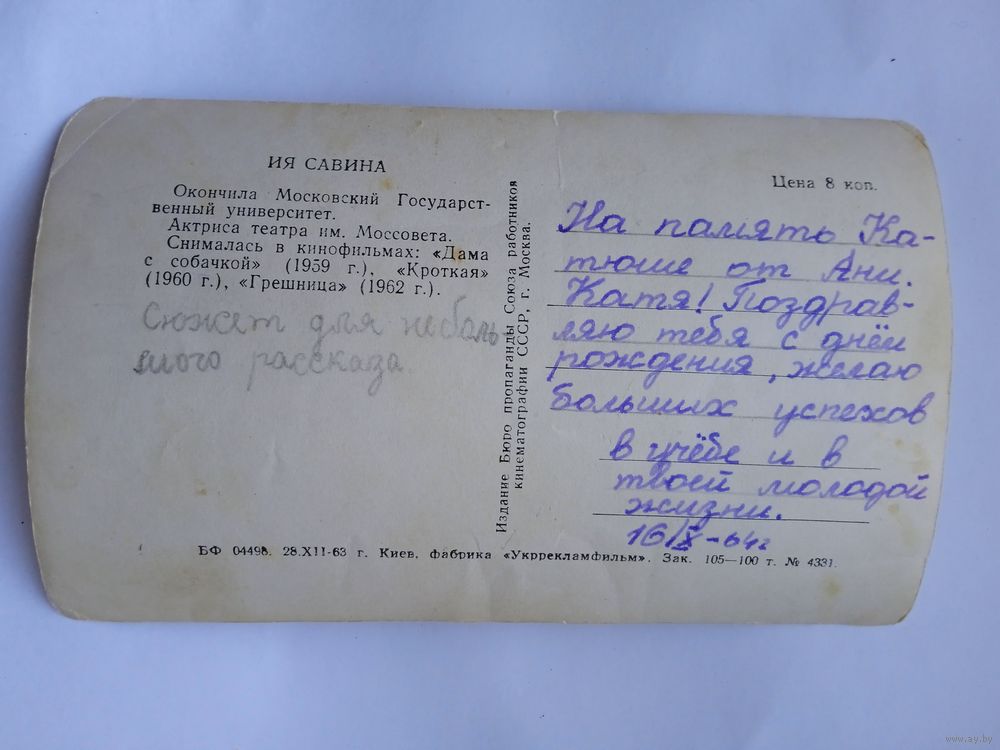 ИЯ САВИНА
Окончила Московский Государст-
венный университет.
Актриса театра им. Моссовета.
Снималась в кинофильмах: «Дама
с собачкой» (1959 г.), «Кроткая»
(1960 г.), «Грешница» (1962 г.).
Сюжет для неболь-
шого рассказа
Издание Бюро пропаганды Союза работников
кинематографии СССР, г. Москва.
Цена 8 коп.
На память Ка-
тюше от Ани.
Катя! Поздрав-
ляю тебя с днём
рождения, желаю
больших успехов
в учёбе и в
твоей молодой
жизни.
16/X-64г
БФ 04498. 28.XII-63 г. Киев, фабрика «Укррекламфильм». Зак. 105—100 т. № 4331.
www.ay.by